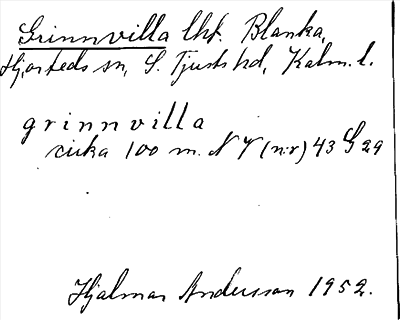 Grinnvilla lht. Blanka,
Hjorteds sn, S. Tjusts hd, Kalm. l.
grinnvilla
cirka 100 m. NV (n:r) 43 G 29
Hjalmar Andersson 1952.